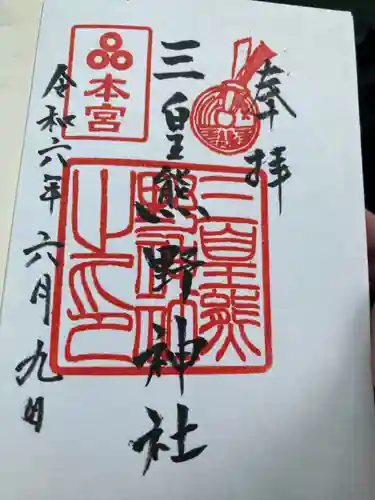 奉拝
三皇熊野神社
本宮
令和六年 六月 九日
三皇熊
野神社
之印